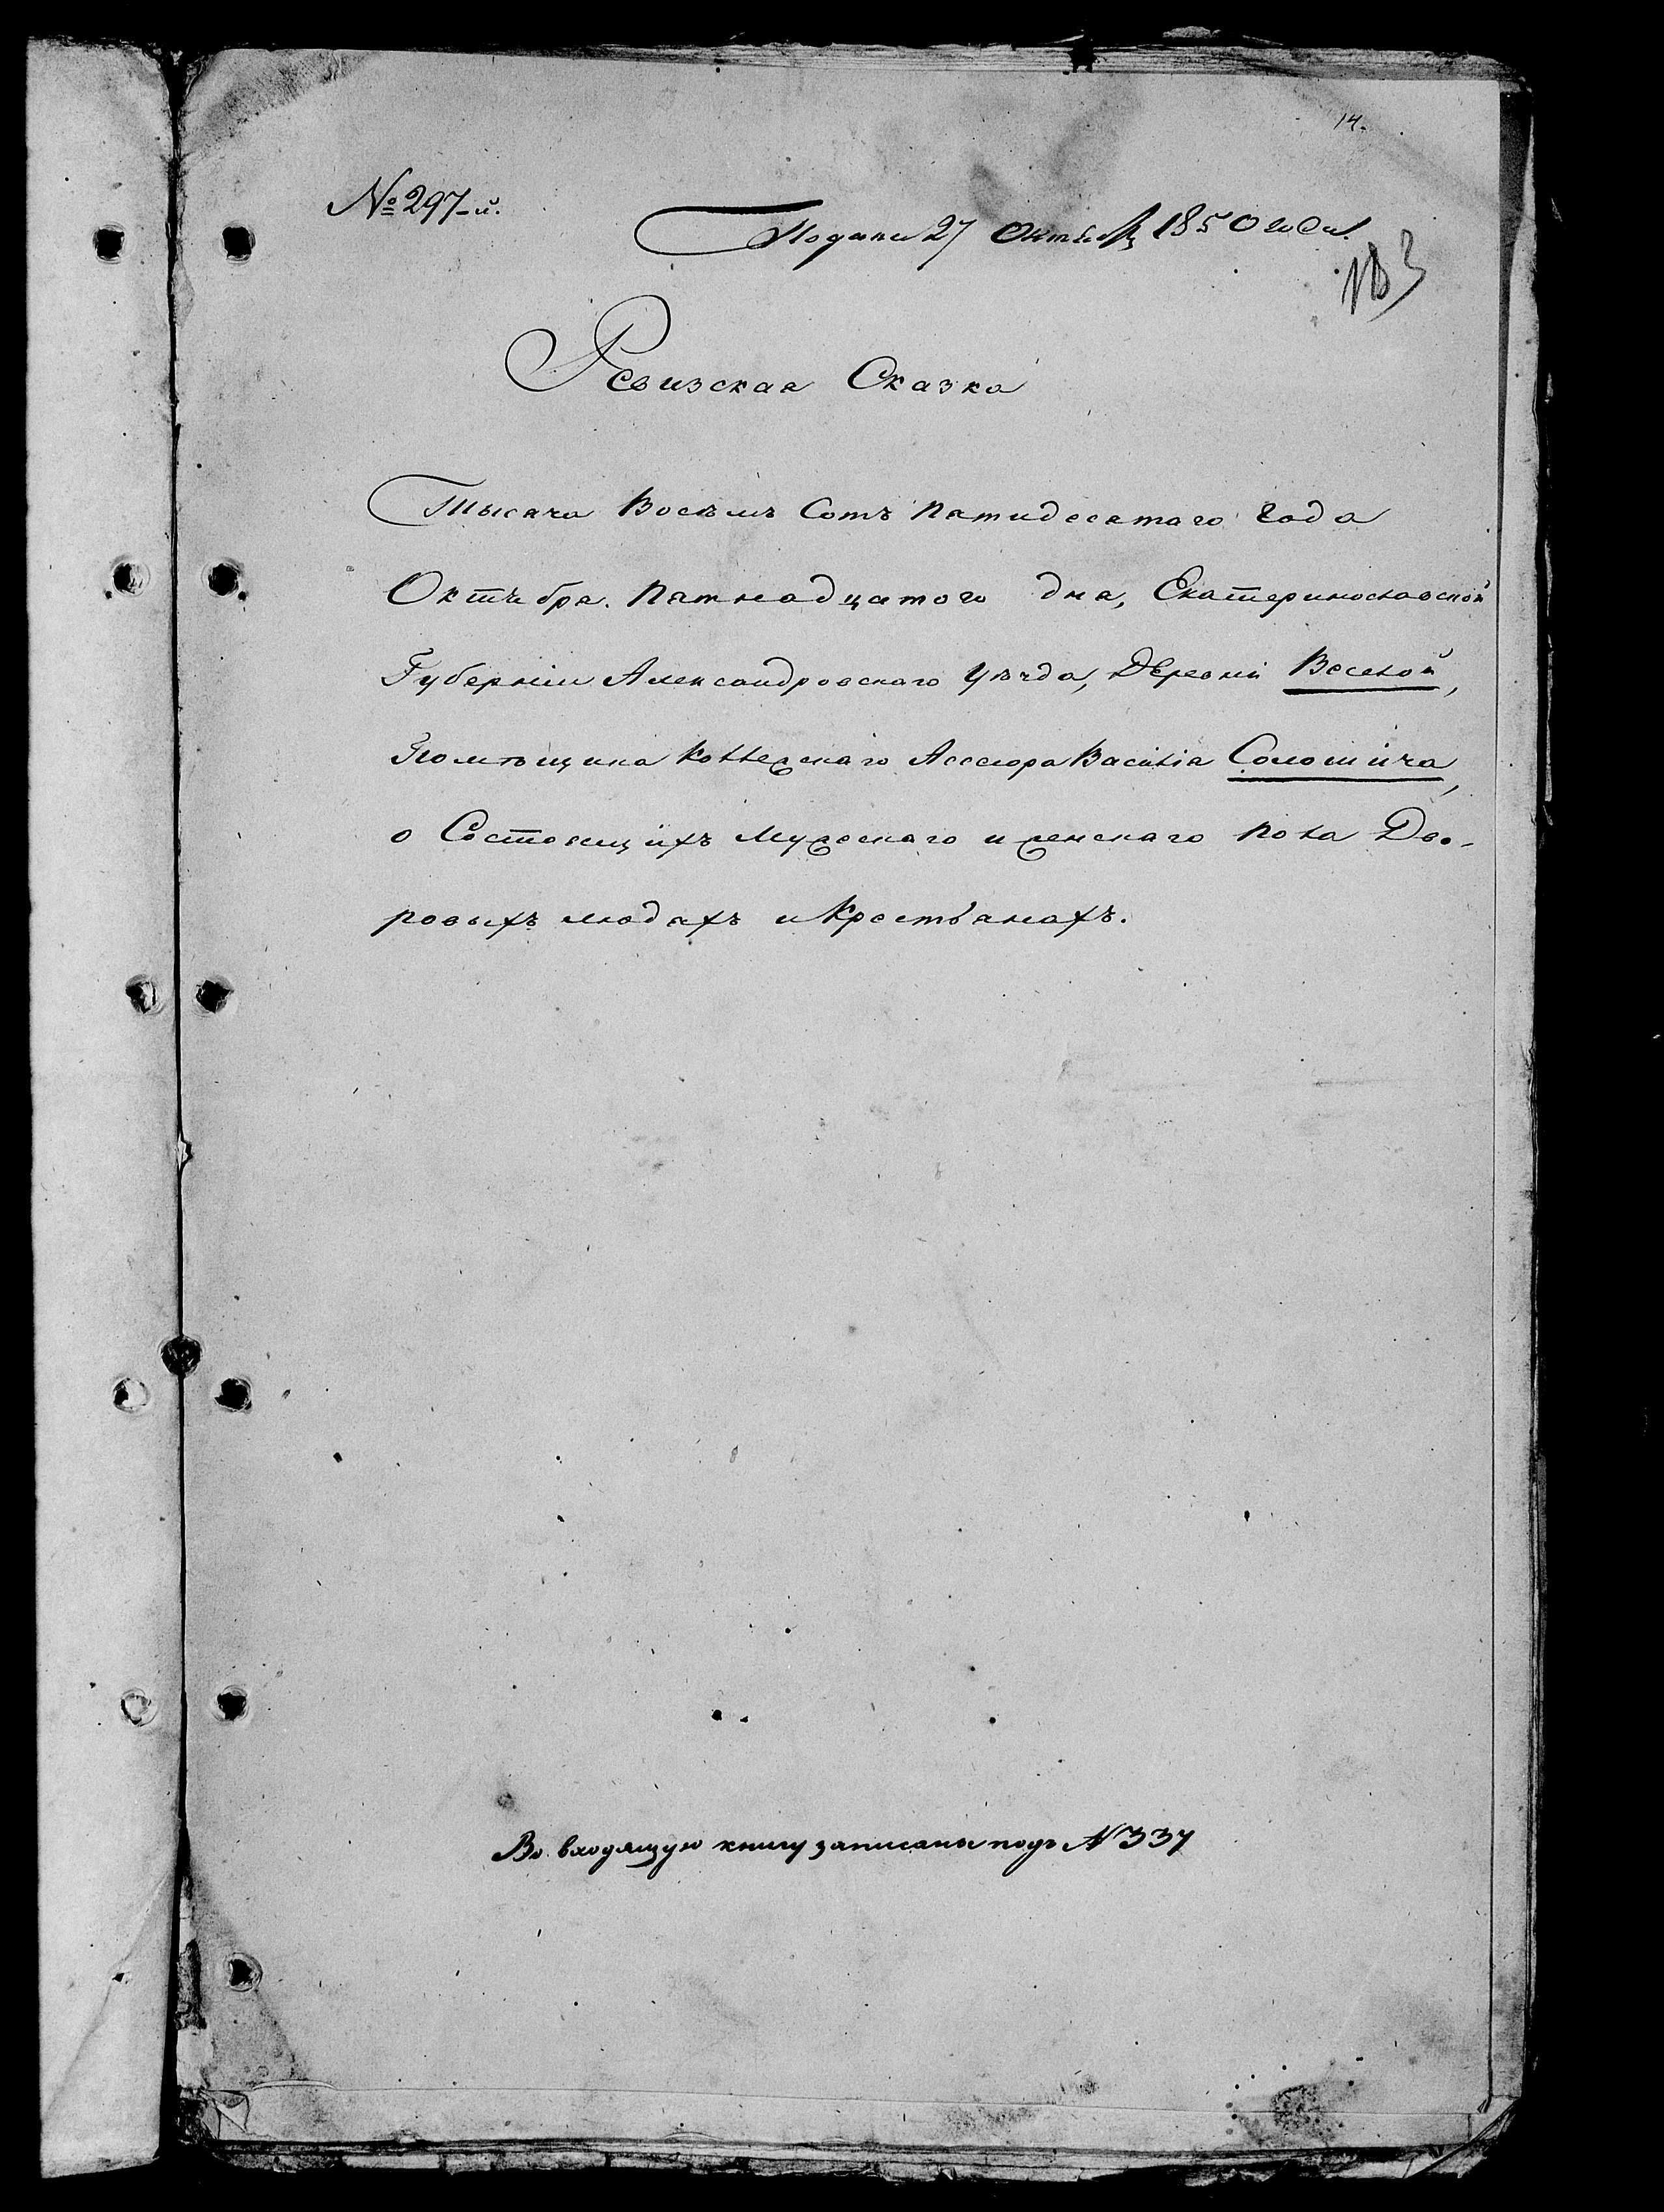 14.
№ 297-й.
Подана 27 Октября 1850 года.
183
Ревизская Сказка
Тысяча Восемь Сотъ пятидесятого Года
Октября. пятнадцатого дня, Екатеринославской
Губерніи Александровскаго Уѣзда, Деревни Веселой,
Помѣщика Коллежскаго Ассесора Василія Солошича,
о Состоящихъ мужескаго и женскаго пола Дво-
ровыхъ людяхъ и Крестьянахъ.
Во входящую книгу записана подъ № 337